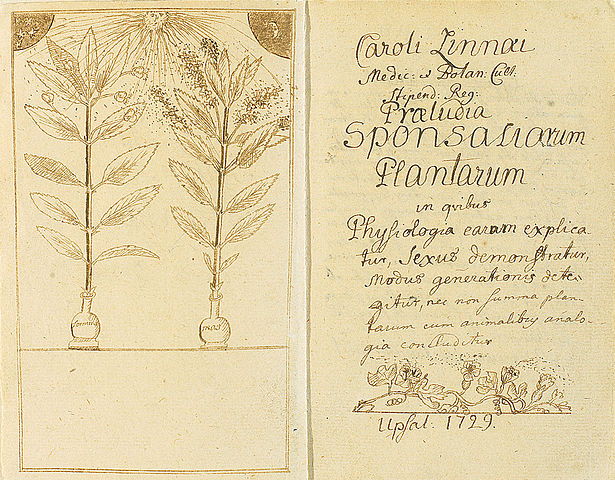 foemina
mas
Caroli Linnæi
Medic: & Botan. Cult.
Stipend: Reg:
Præludia
Sponsaliarum
Plantarum
in qvibus
Physiologia earum explica-
tur, Sexus demonstratur,
Modus generationis dete-
gitur, nec non summa plan-
tarum cum animalibus analo-
gia concluditur
Upsal. 1729.